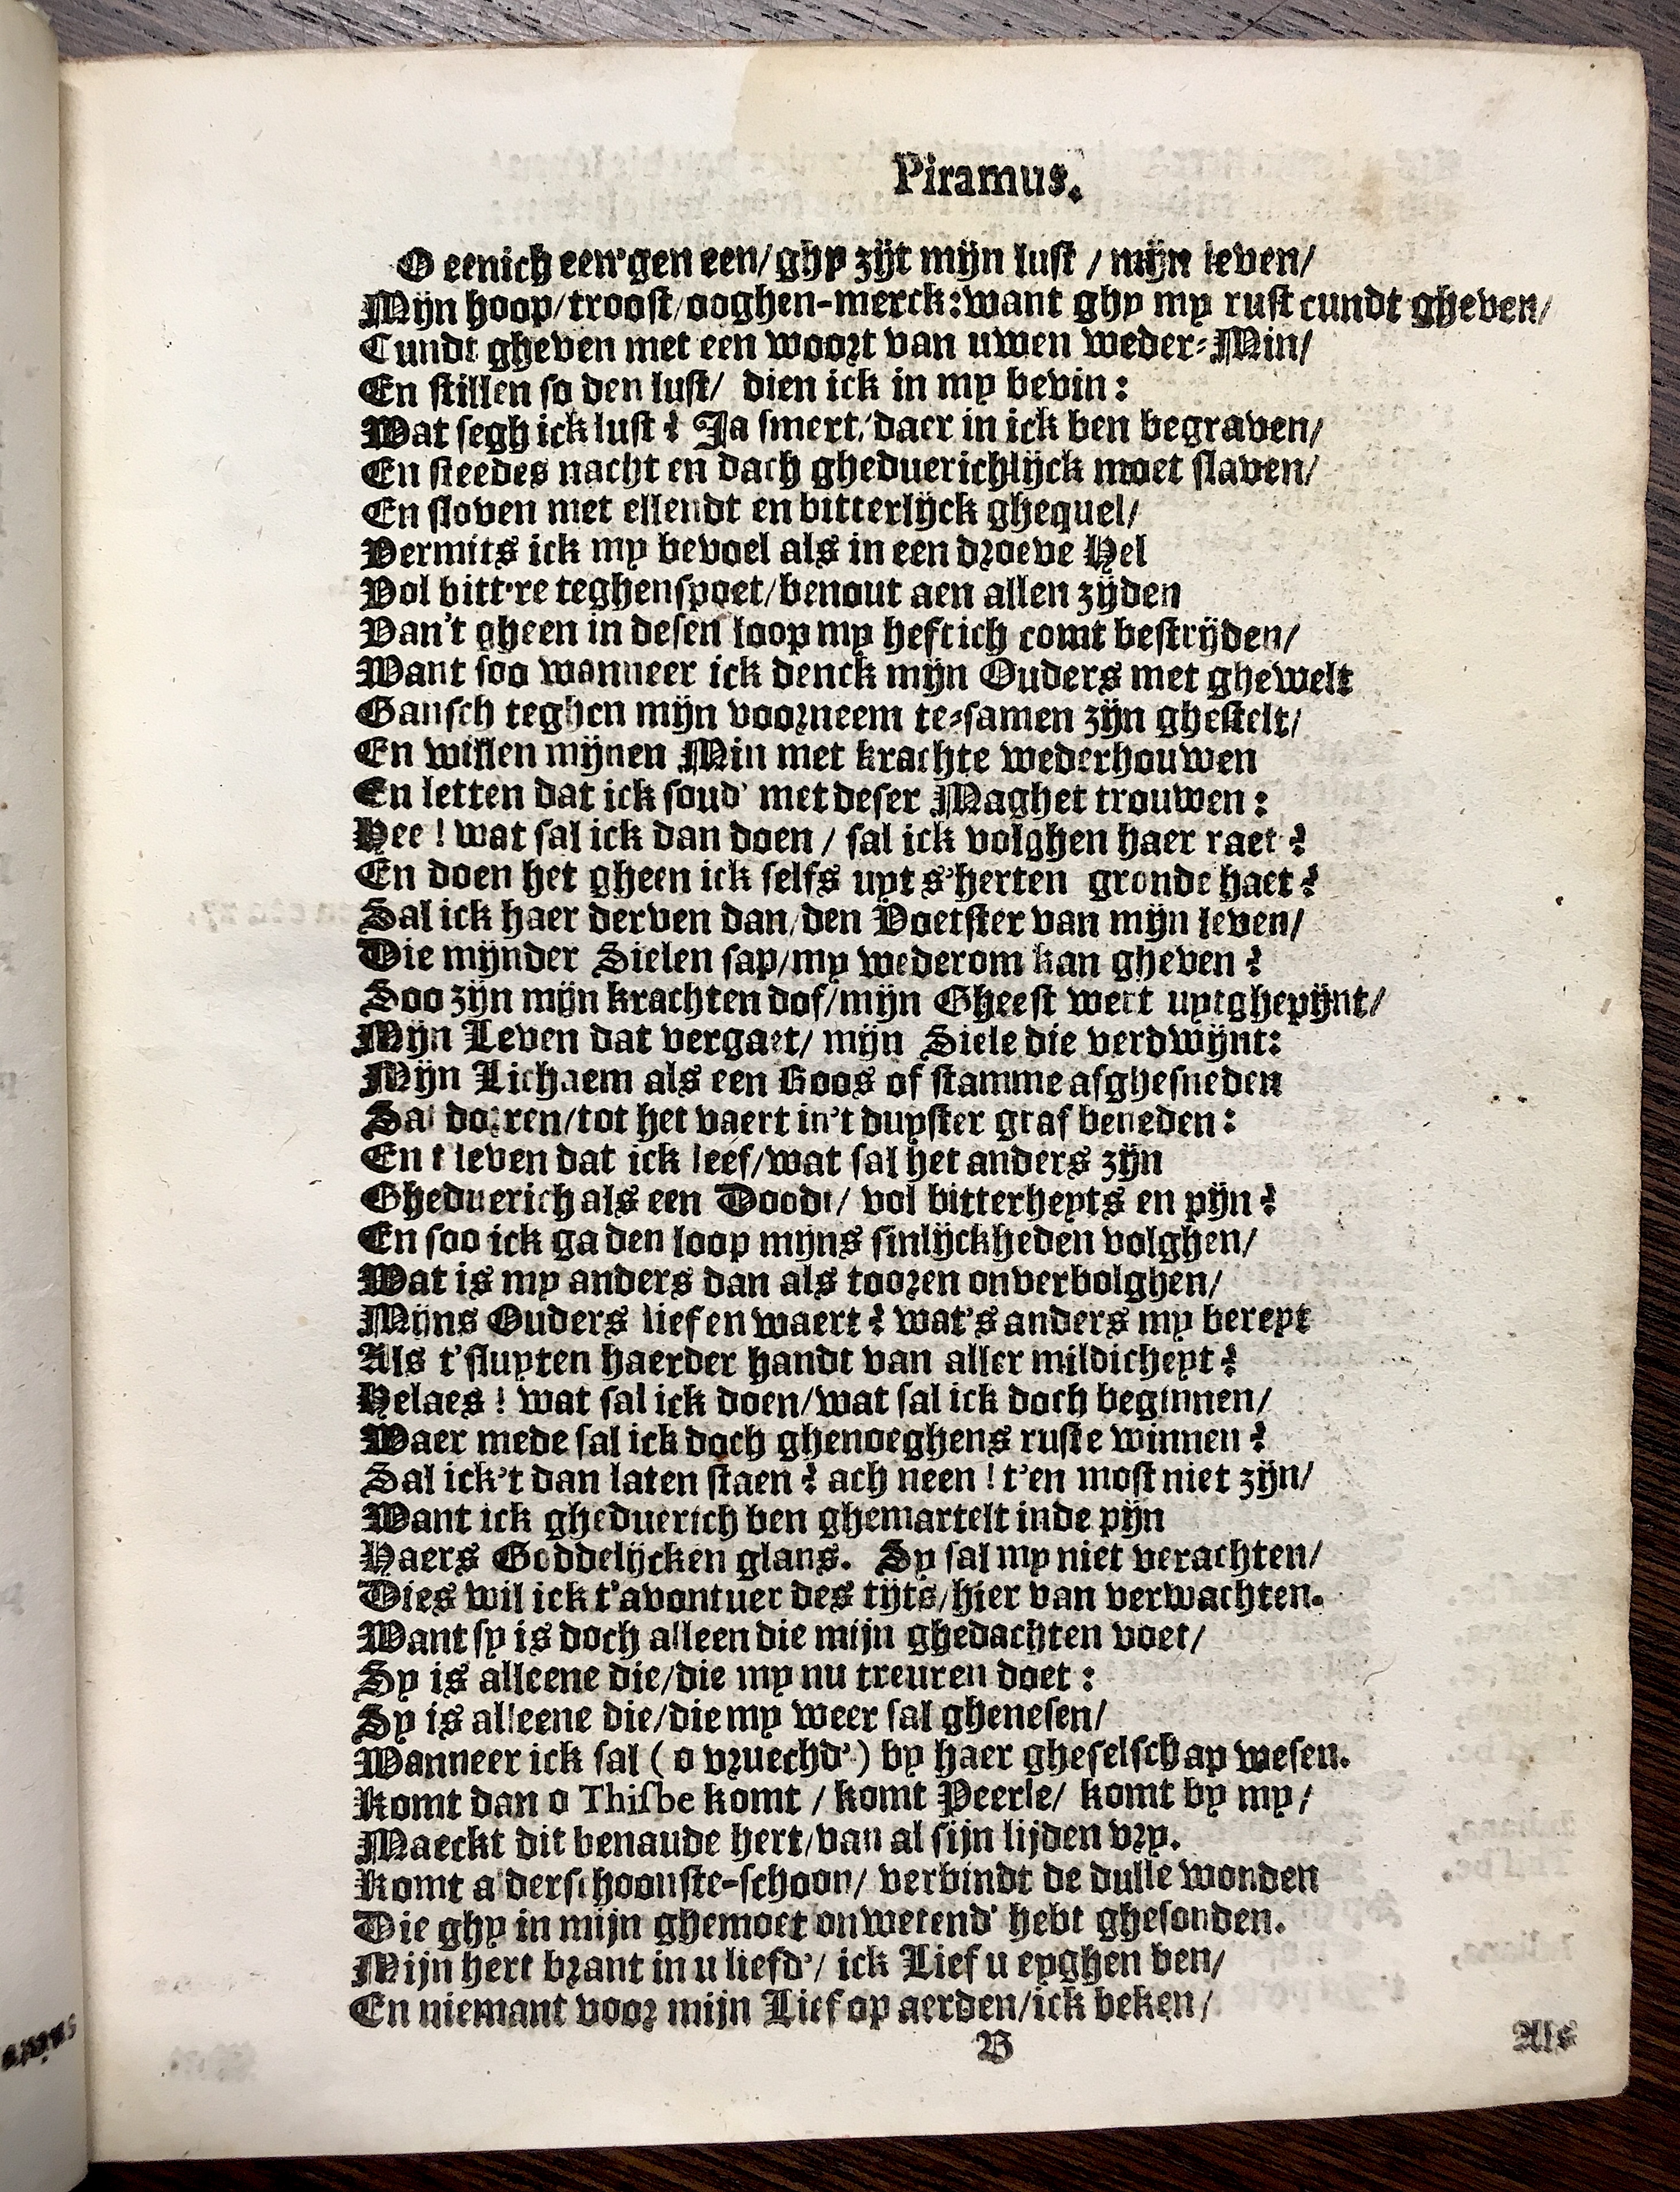 Piramus.
O eenich een'gen een/ ghy zijt mijn lust / mijn leven/
Mijn hoop/troost/ooghen-merck: want ghy my rust cundt gheven/
Cundt gheven met een woort van uwen weder-Min/
En stillen so den lust/ dien ick in my bevin:
Wat segh ick lust? Ja smert/daer in ick ben begraven/
En steedes nacht en dach gheduerichlijck moet slaven/
En sloven met ellendt en bitterlijck ghequel/
Vermits ick my bevoel als in een droeve Hel
Vol bitt're teghenspoet/benout aen allen zijden
Van't gheen in desen loop my heftich comt bestrijden/
Want soo wanneer ick denck mijn Ouders met ghewelt
Gansch teghen mijn voorneem te-samen zijn ghestelt/
En willen mijnen Min met krachte wederhouwen
En letten dat ick soud' met deser Maghet trouwen:
Hee! wat sal ick dan doen / sal ick volghen haer raet?
En doen het gheen ick selfs uyt s'herten gronde haet?
Sal ick haer derven dan/den Voetster van mijn leven/
Die mijnder Sielen sap/my wederom kan gheven?
Soo zijn mijn krachten dof/mijn Gheest wert uytghepijnt/
Mijn Leven dat vergaet/ mijn Siele die verdwijnt:
Mijn Lichaem als een Roos of stamme afghesneden
Sal dorren/tot het vaert in't duyster graf beneden:
En t leven dat ick leef/wat sal het anders zijn
Gheduerich als een Doodt/ vol bitterheyts en pijn?
En soo ick ga den loop mijns sinlijckheden volghen/
Wat is my anders dan als tooren onverbolghen/
Mijns Ouders lief en waert? wat's anders my bereyt
Als t'sluyten haerder handt van aller mildicheyt?
Helaes! wat sal ick doen/wat sal ick doch beginnen/
Waer mede sal ick doch ghenoeghens ruste winnen?
Sal ick't dan laten staen? ach neen! t'en most niet zijn/
Want ick gheduerich ben ghemartelt inde pijn
Haers Goddelijcken glans. Sy sal my niet verachten/
Dies wil ick t'avontuer des tijts/hier van verwachten.
Want sy is doch alleen die mijn ghedachten voet/
Sy is alleene die/die my nu treuren doet:
Sy is alleene die/die my weer sal ghenesen/
Wanneer ick sal (o vruechd') by haer gheselschap wesen.
Komt dan o Thisbe komt / komt Peerle/ komt by my/
Maeckt dit benaude hert/van al sijn lijden vry.
Komt alderschoonste-schoon/ verbindt de dulle wonden
Die ghy in mijn ghemoet onwetend' hebt ghesonden.
Mijn hert brant in u liefd'/ ick Lief u eyghen ben/
En niemant voor mijn Lief op aerden/ick beken/
B
Als